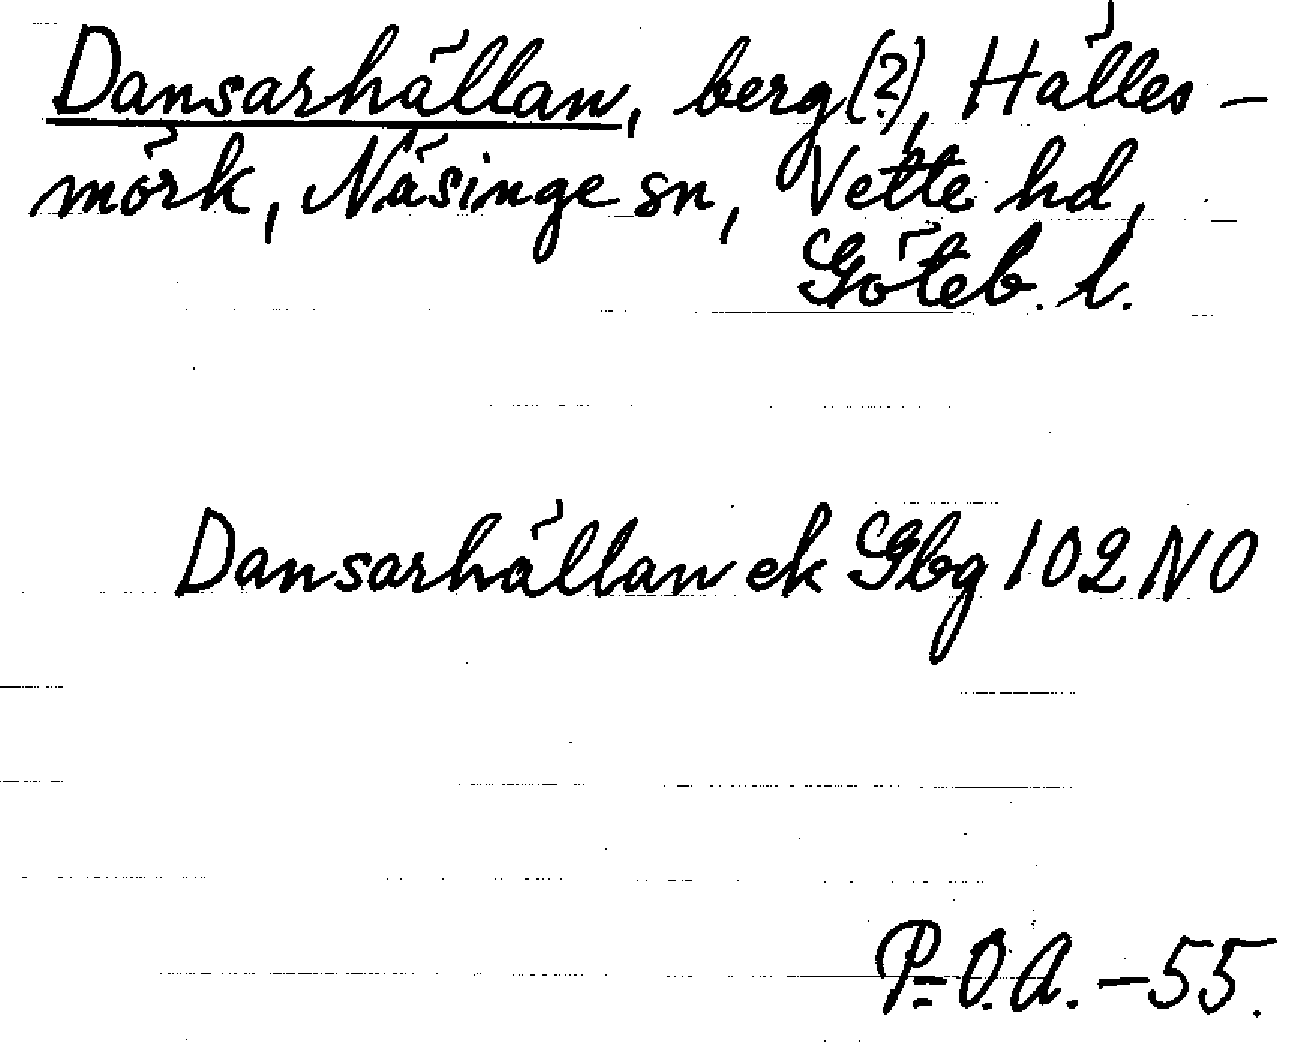 Dansarhällan, berg (?), Hälles-
mörk, Näsinge sn, Vette hd,
Göteb. l.
Dansarhällan ek Gbg 102 NO
P.-O.A. -55.